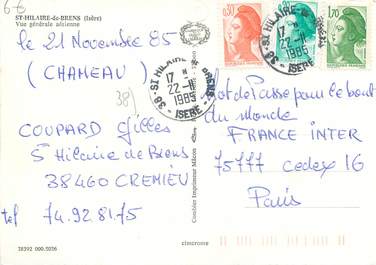 6€
ST-HILAIRE-de-BRENS (Isère)
Vue générale aérienne
le 21 Novembre 85
(CHAMEAU)
38)
COUPARD Gilles
St Hilaire de Brens
38460 CREMIEU
tel 74.92.81.75
38392 000.5026
Combier Imprimeur Mâcon
cimcrome
0,30
1,70
38 - ST HILAIRE DE BRENS -
17 H
22-11
1985
ISERE
38 - ST HILAIRE DE BRENS -
17 H
22-11
1985
ISERE
Mot de Passe pour le bout
du monde
FRANCE INTER
75777 cedex 16
Paris